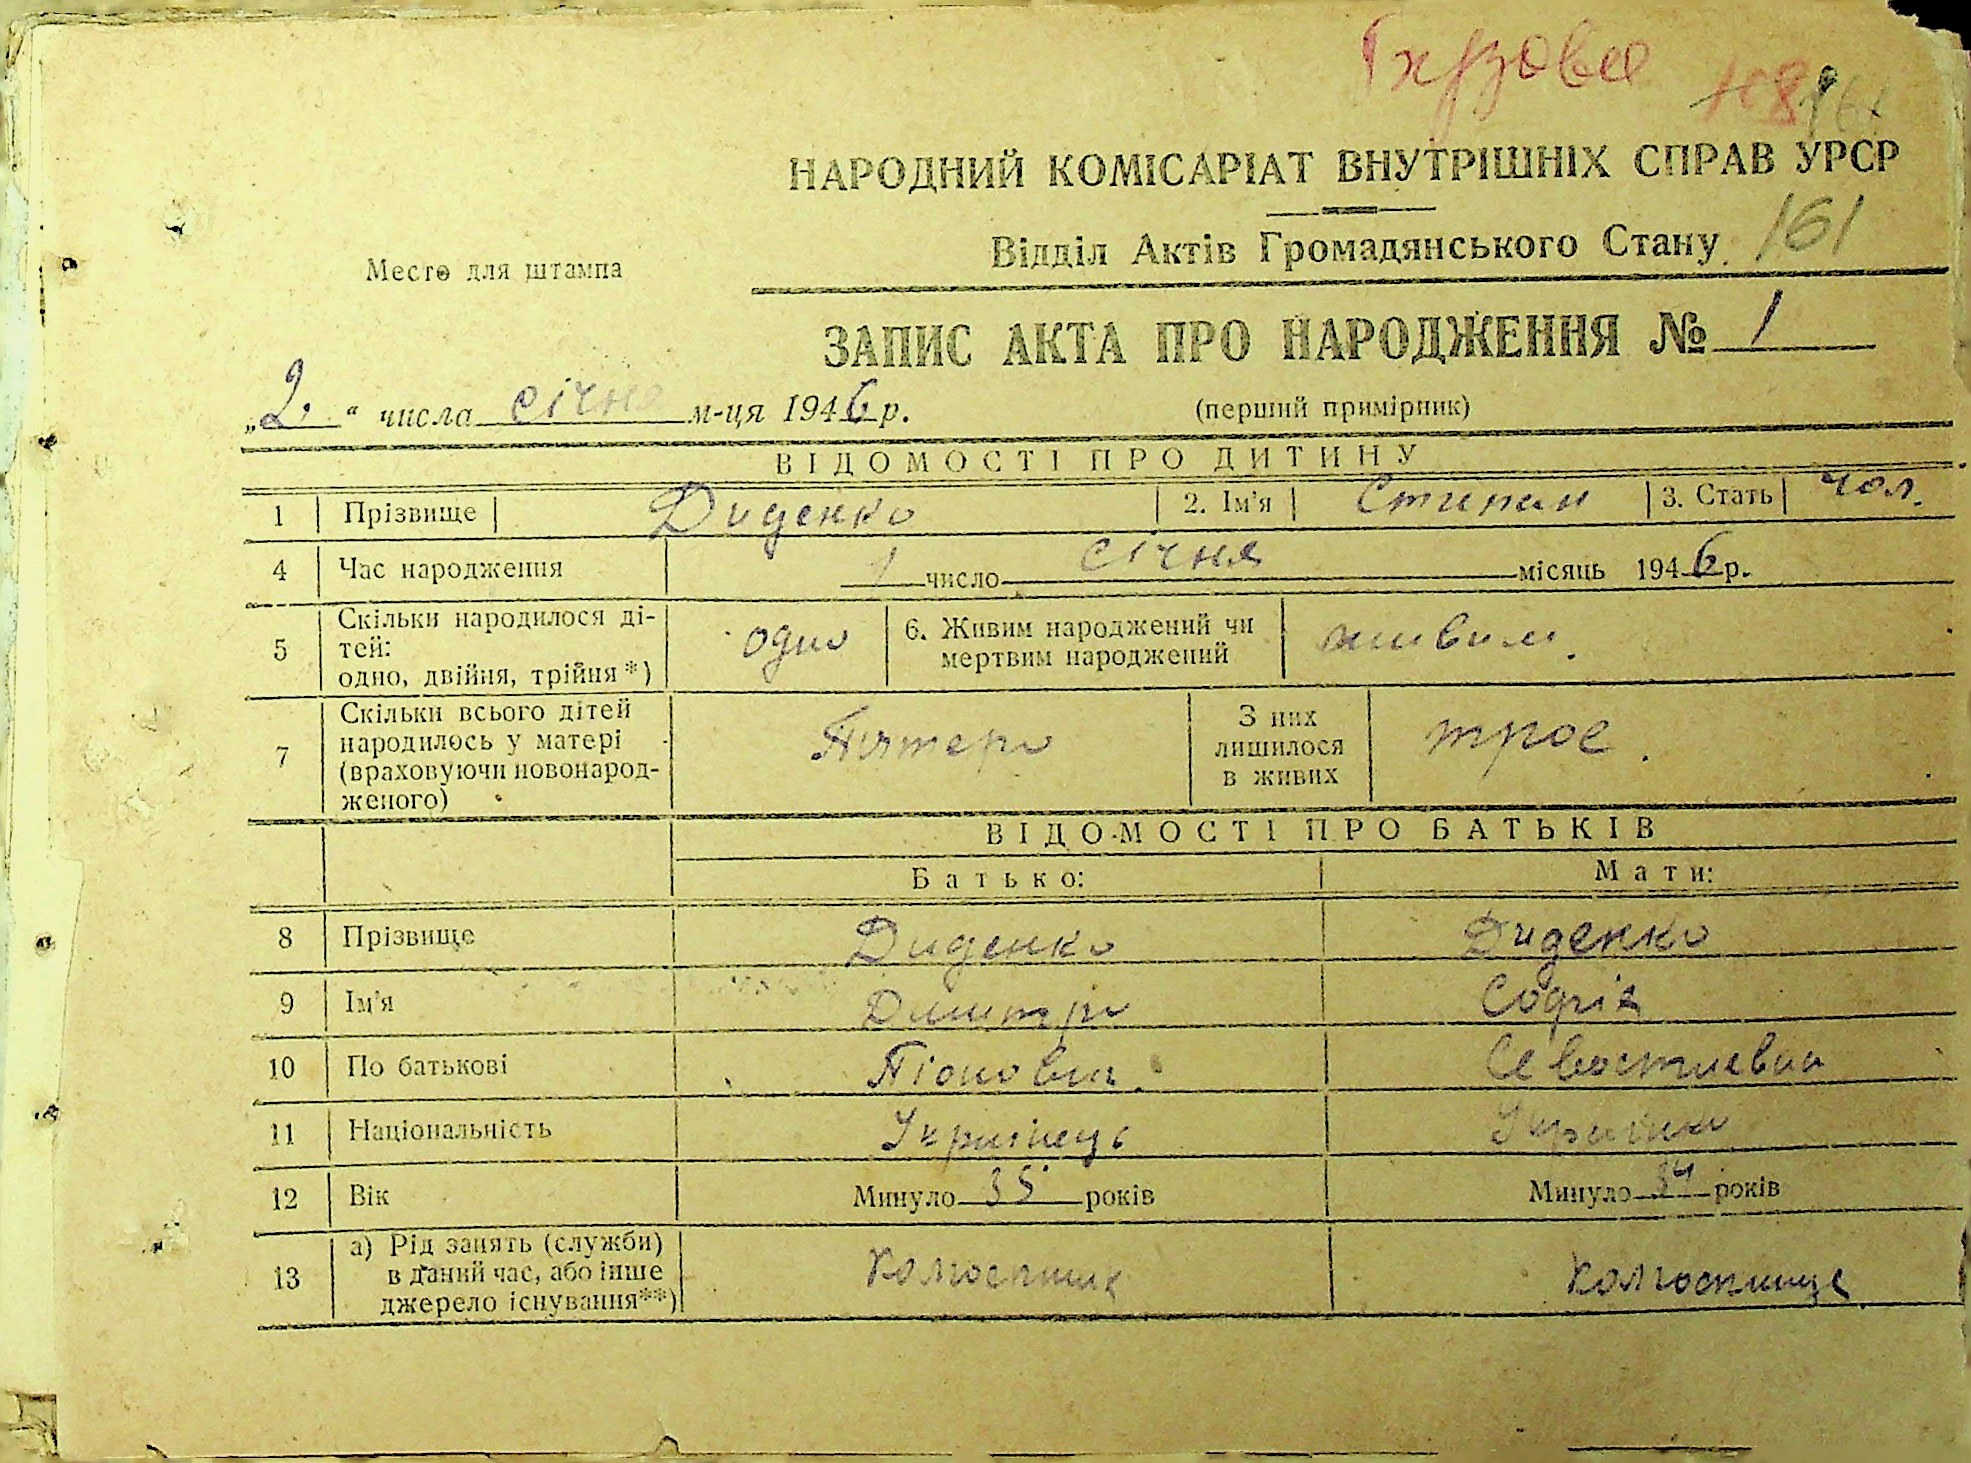 161
НАРОДНИЙ КОМІСАРІАТ ВНУТРІШНІХ СПРАВ УРСР
Відділ Актів Громадянського Стану 161
Место для штампа
ЗАПИС АКТА ПРО НАРОДЖЕННЯ № 1
„2.“ числа січня м-ця 1946 р. (перший примірник)
ВІДОМОСТІ ПРО ДИТИНУ
1 Прізвище Диденко 2. Ім'я Степан 3. Стать чол.
4 Час народження 1 число січня місяць 1946 р.
5 Скільки народилося ді-
тей:
одно, двійня, трійня*) одно 6. Живим народжений чи
мертвим народжений живим.
7 Скільки всього дітей
народилось у матері
(враховуючи новонарод-
женого) Пятеро З них
лишилося
в живих трое.
ВІДОМОСТІ ПРО БАТЬКІВ
Батько: Мати:
8 Прізвище Диденко Диденко
9 Ім'я Дмитро Софія
10 По батькові
11 Національність Українець Українка
12 Вік Минуло 35 років Минуло 34 років
13 а) Рід занять (служби)
в даний час, або інше
джерело існування**) Колгоспник Колгоспниця